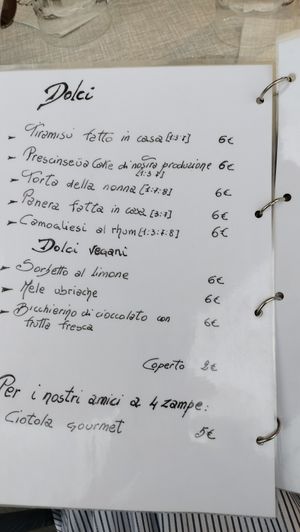 Dolci
- Tiramisù fatto in casa [1·3·7] 6€
- Prescinseûa Cake di nostra produzione 6€
[1·3·7]
- Torta della nonna [1·7·8] 6€
- Panera fatta in casa [3·7] 6€
- Camogliesi al rhum [1·3·7·8] 6€
Dolci vegani
- Sorbetto al limone 6€
- Mele ubriache 6€
- Bicchierino di cioccolato con 6€
frutta fresca
Coperto 2€
Per i nostri amici a 4 zampe:
Ciotola gourmet 5€